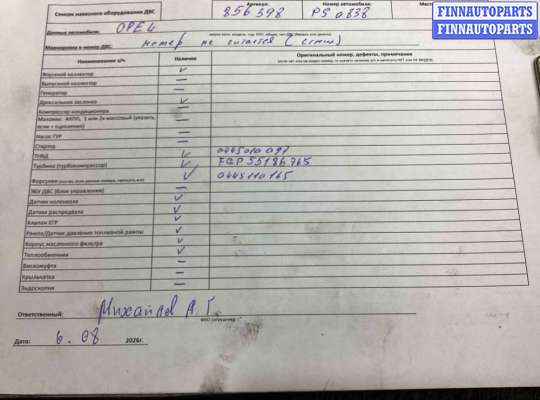 FINNAUTOPARTS
FINNAUTOPARTS
FINNAUTOPARTS
Список навесного оборудования ДВС Артикул: 856398 Номер автомобиля: PS 0838
Данные автомобиля: OPEL
Маркировка и номер ДВС: номер не читается (стёрт)
Наименование з/ч Наличие Оригинальный номер, дефекты, примечание
Впускной коллектор ✓
Выпускной коллектор —
Генератор —
Дроссельная заслонка ✓
Компрессор кондиционера —
Маховик: АКПП, 1 или 2х массовый (указать, если + сцепление) —
Насос ГУР —
Стартер —
ТНВД ✓ 0445010097
Турбина (турбокомпрессор) ✓ FGP55186765
Форсунки ✓ 0445110165
ЭБУ ДВС (блок управления) —
Датчик коленвала ✓
Датчик распредвала ✓
Клапан ЕГР ✓
Рампа/Датчик давления топливной рампы ✓
Корпус масляного фильтра ✓
Теплообменник ✓
Вискомуфта —
Крыльчатка —
Эндоскопия —
Ответственный: Михайлов А. Г.
Дата: 6. 08 2026г.